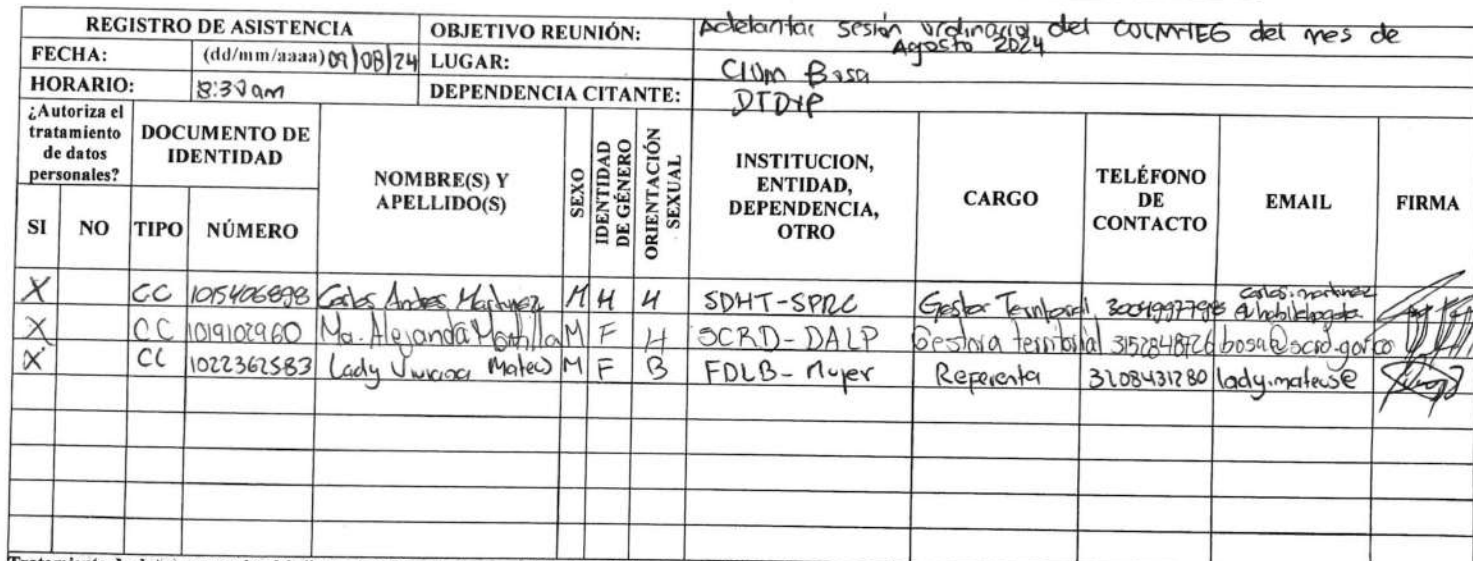 REGISTRO DE ASISTENCIA OBJETIVO REUNIÓN: Adelantar sesión ordinaria del COLMYEG del mes de
Agosto 2024
FECHA: (dd/mm/aaaa) 09/08/24 LUGAR: CIOM Bosa
HORARIO: 8:30 am DEPENDENCIA CITANTE: DTDYP
¿Autoriza el tratamiento de datos personales?
SI NO
DOCUMENTO DE IDENTIDAD
TIPO NÚMERO
NOMBRE(S) Y APELLIDO(S)
SEXO
IDENTIDAD DE GÉNERO
ORIENTACIÓN SEXUAL
INSTITUCION, ENTIDAD, DEPENDENCIA, OTRO
CARGO
TELÉFONO DE CONTACTO
EMAIL
FIRMA
X CC 1015406898 Carlos Andres Martinez M H H SDHT-SPRC Gestor Territorial carlos.martinez
X CC 1019102960 Ma. Alejandra M F H SCRD-DALP Gestora territorial 3152848726 bosa@scrd.gov.co
X CC 1022362583 Lady Viviana Mateus M F B FDLB-Mujer Referenta 3208431280 lady.mateus@